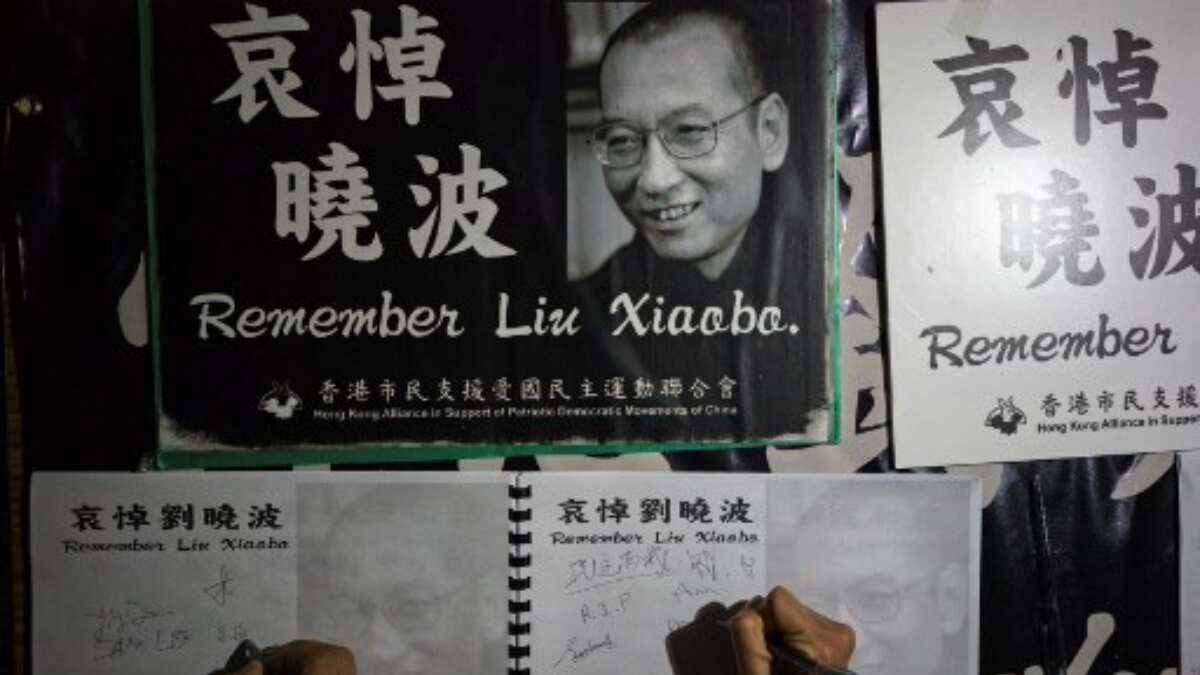 哀悼
曉波
Remember Liu Xiaobo.
香港市民支援愛國民主運動聯合會
Hong Kong Alliance in Support of Patriotic Democratic Movements of China
哀悼
曉波
Remember
香港市民支援
Hong Kong Alliance in Support
哀悼劉曉波
Remember Liu Xiaobo
SAM LEE
哀悼劉曉波
Remember Liu Xiaobo
R.I.P